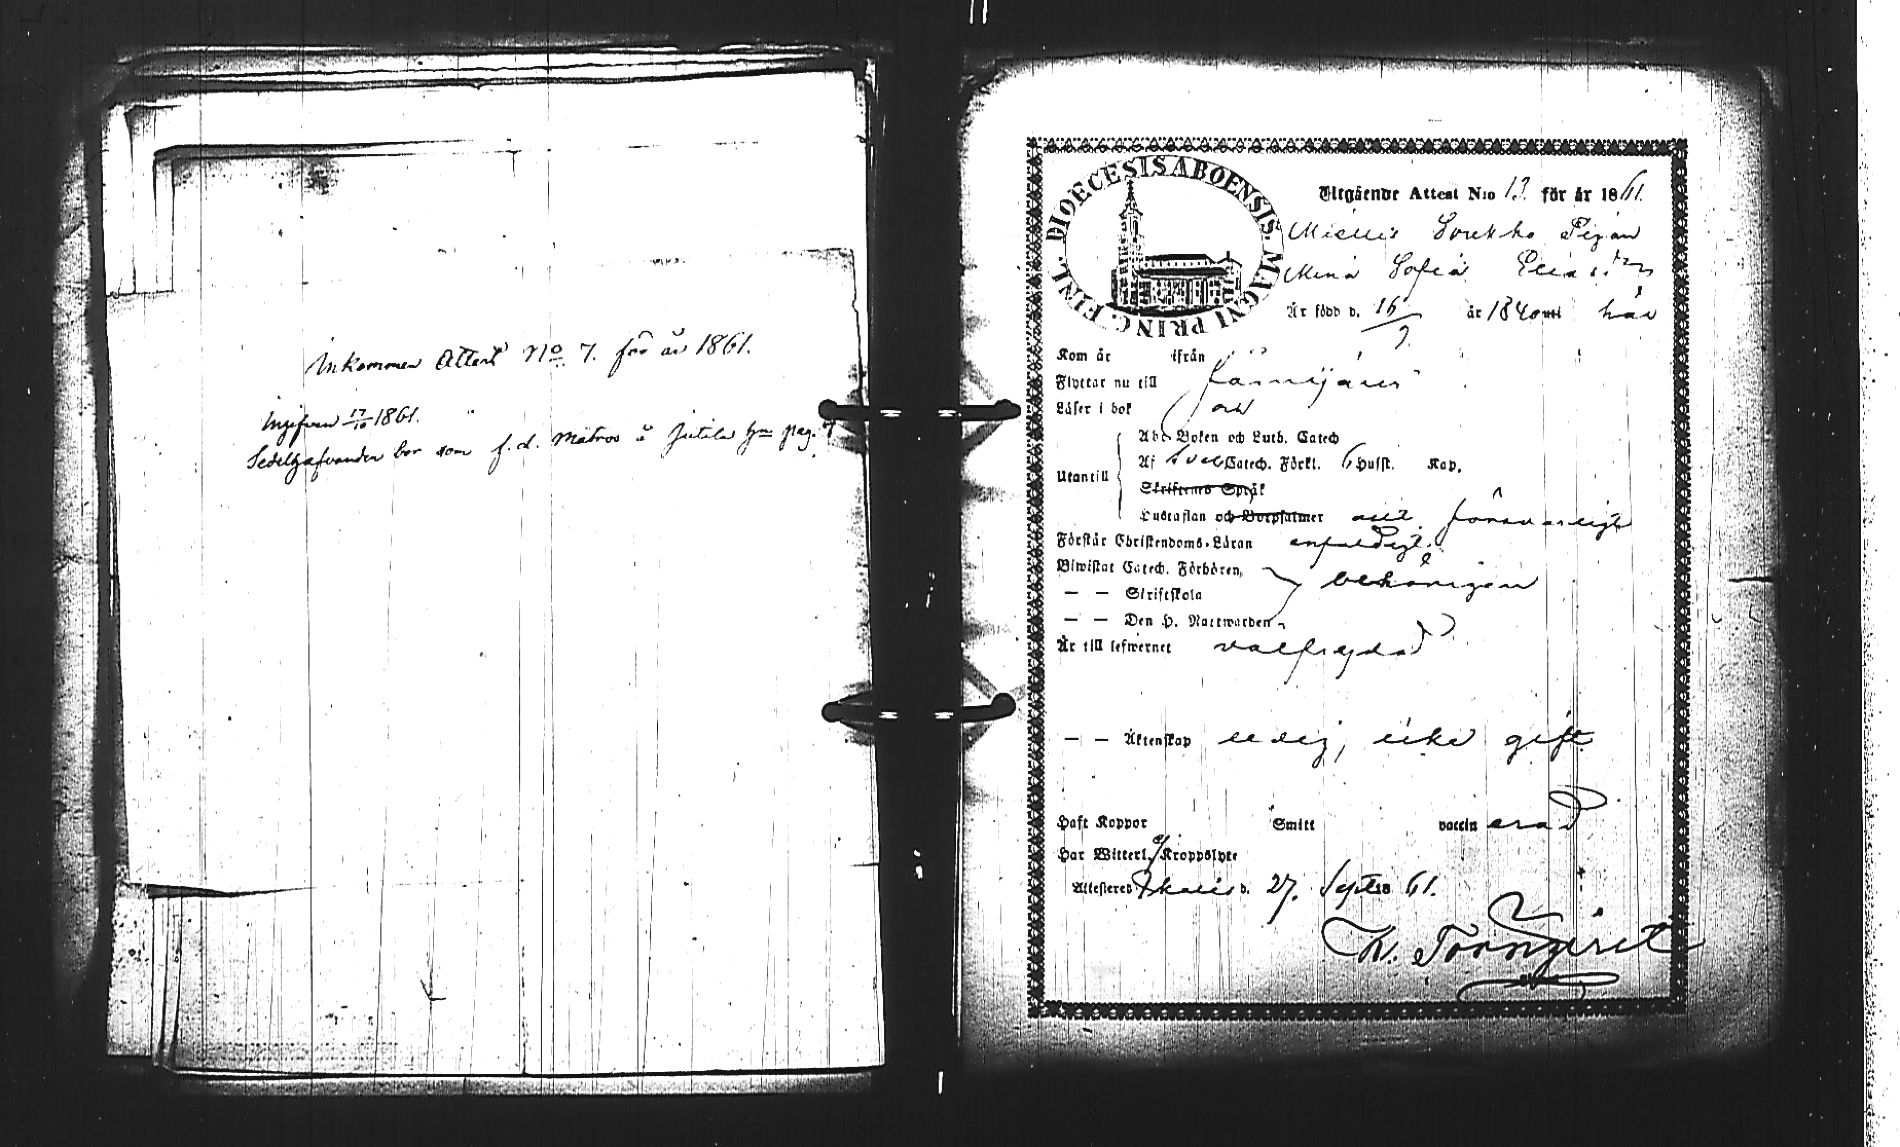 Inkommen Attest No 7. för år 1861.
Ingifven 17/10 1861.
Sedelhafvanden bor som f.d. Matros å Jutila hn pag. 7
DIOECESIS ABOENSIS. MAGNI PRINC. FINL.
Utgående Attest N:o 13 för år 1861.
Pigan
Mina Sofia
Är född d. 16/9 år 1840 uti här
Kom år ifrån
Flyttar nu till
Läser i bok
Utantill
Abc Boken och Luth. Catech
Af Catech. Förkl. 6 Hufst. Kap.
Skriftenes Språk
Hustaflan och Botpsalmer allt försvarligt
Förstår Christendoms-Läran enfaldigt.
Biwistat Catech. Förhören,
— — Skriftskola behörigen
— — Den H. Nattwarden
Är till lefwernet välfrejdad
— — Äktenskap ledig, icke gift
Haft Koppor Smitt vaccinerad
Har Witterl. ej Kroppslyte
Attesteras d. 27. Sept. 1861.